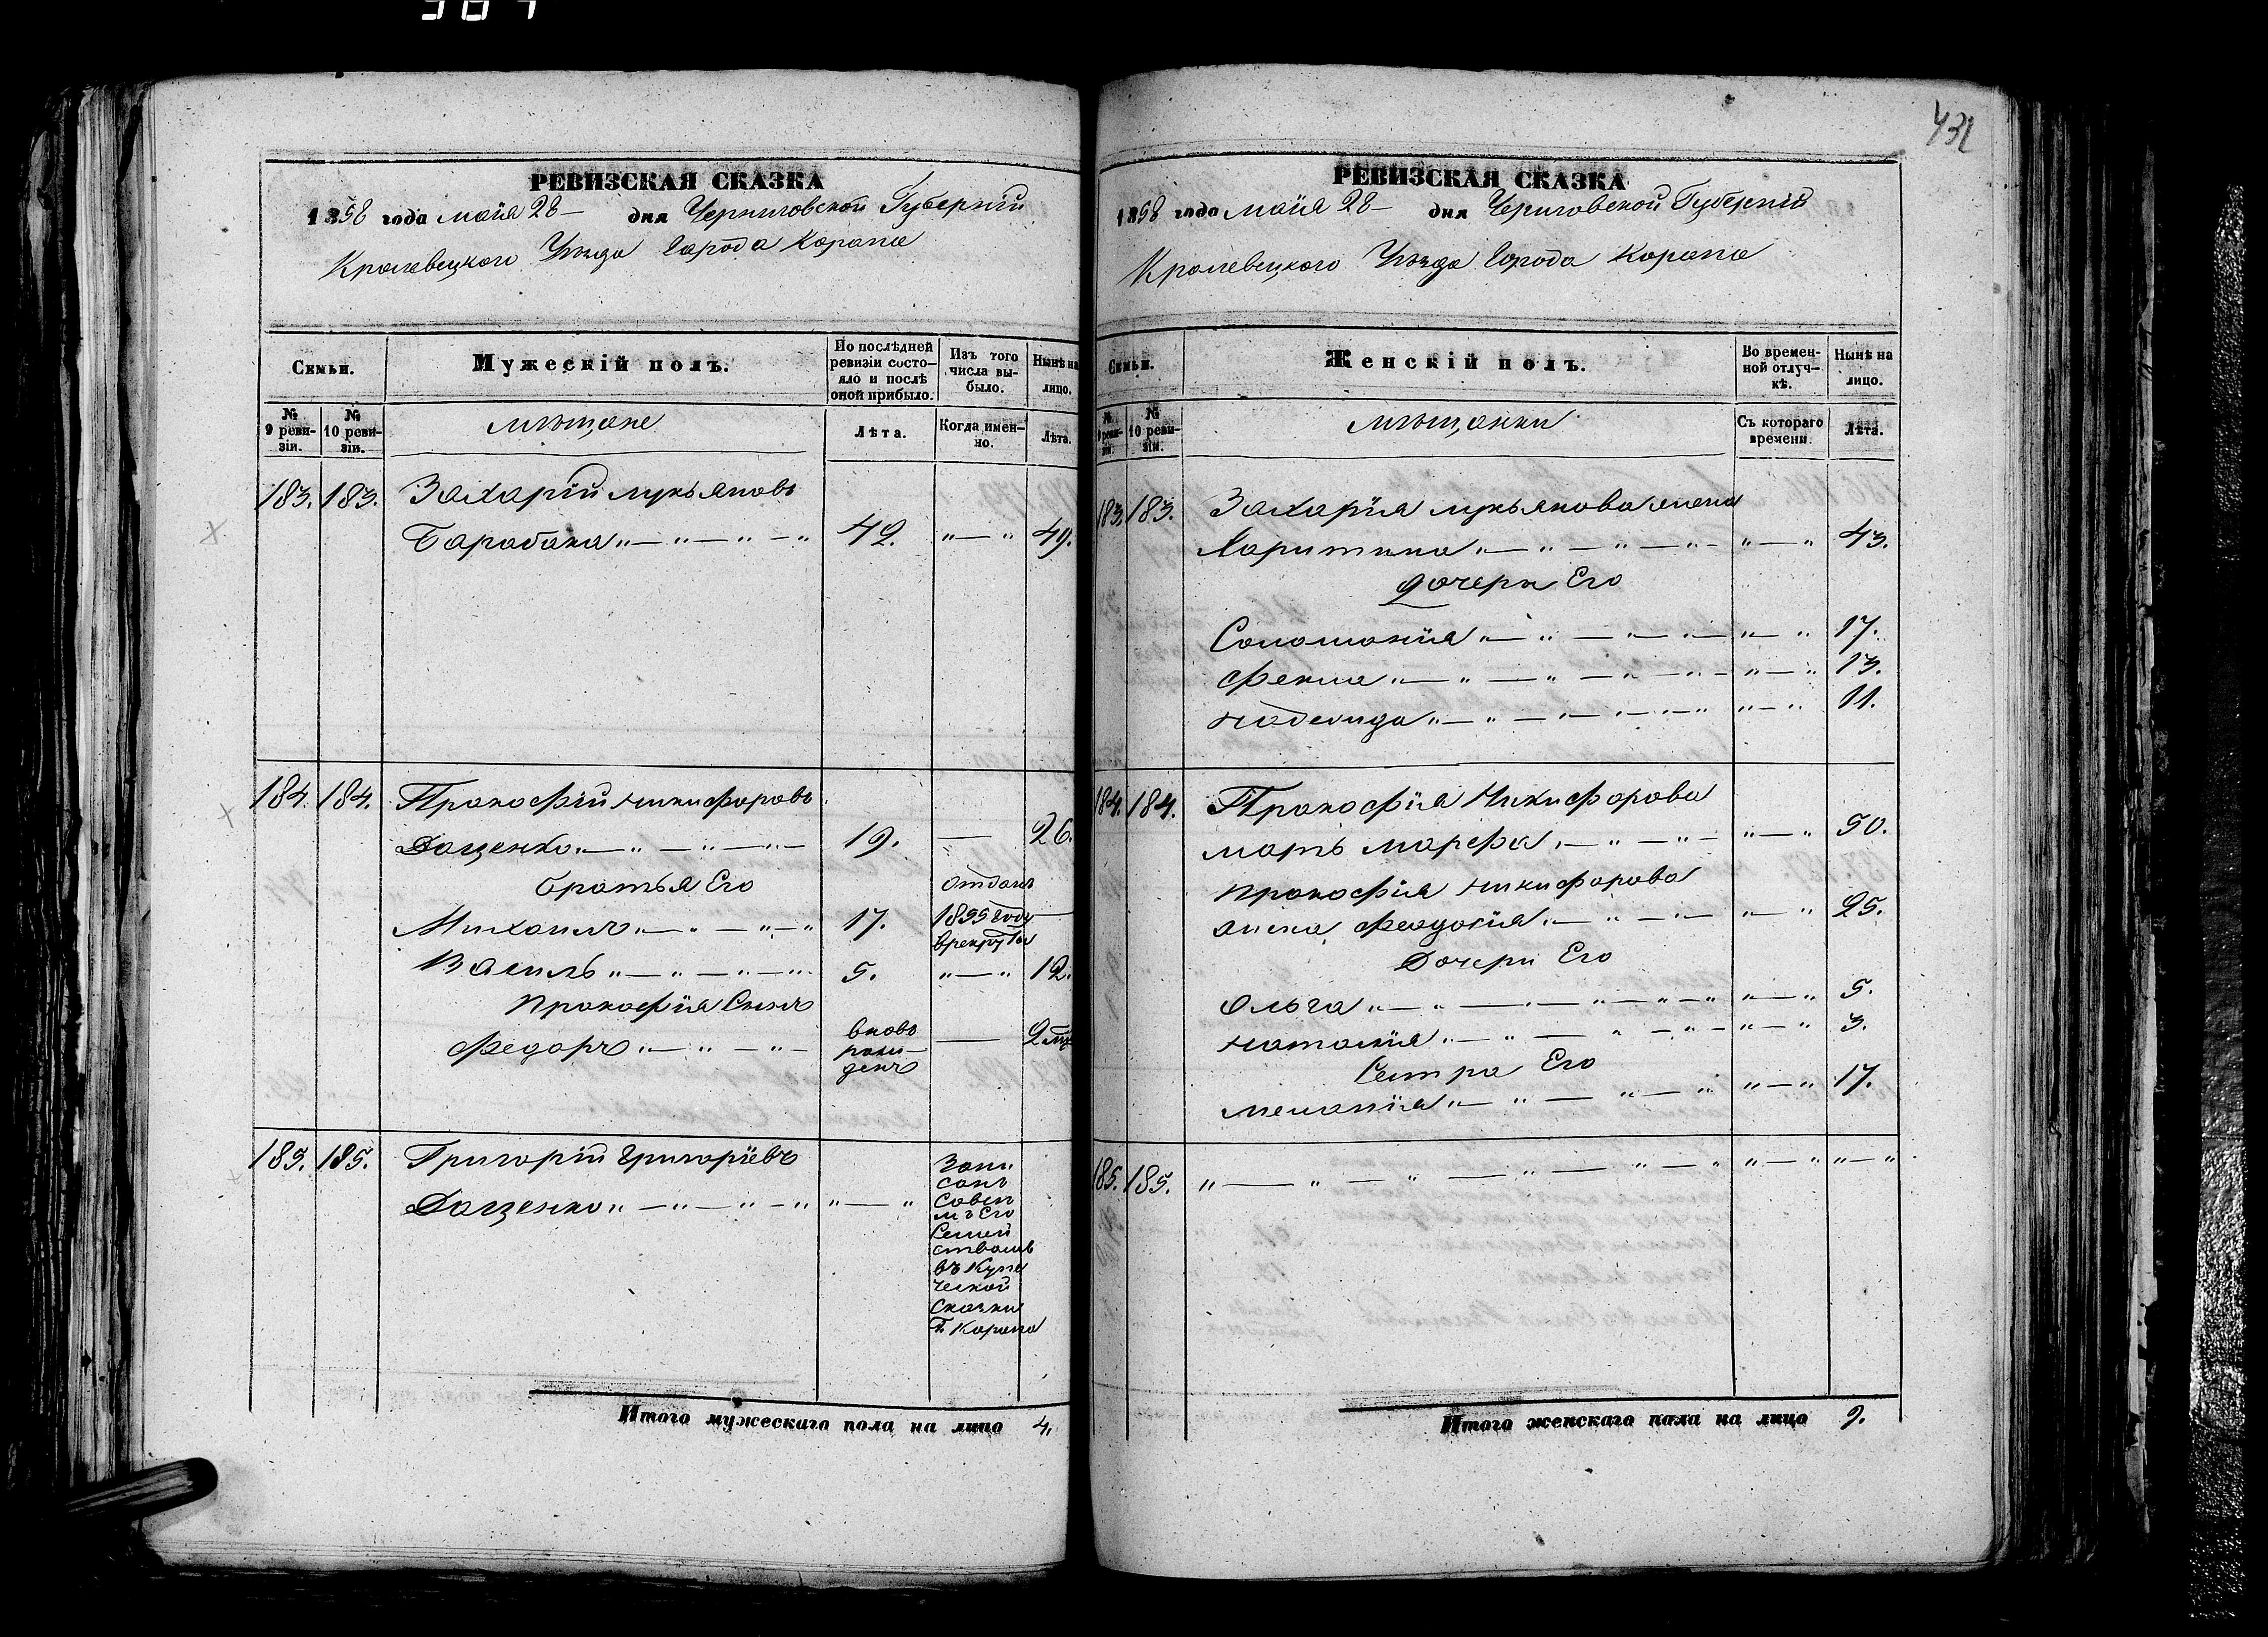 РЕВИЗСКАЯ СКАЗКА
1858 года мaiя 28 — дня Черниговской Губернiи
Кролевецкого Уѣзда Города Коропа
Семьи.
Мужескiй полъ.
По послѣдней ревизiи состо-
яло и послѣ
оной прибыло.
Изъ того
числа вы-
было.
Нынѣ на
лицо.
№
9 реви-
зiи.
№
10 реви-
зiи.
мѣщане
Лѣта.
Когда имен-
но.
Лѣта.
183. 183. Захарiй лукьяновъ
Барабана „ — „ — „ — „ 42. „ — „ 49.
184. 184. Прокофiй Никифоровъ
Даценко „ — „ — „ — 19. — 26.
братья Его
Михаилъ „ — „ — „ — „ 17. отданъ
1855 году —
врекруты
Василь „ — „ — „ — „ 5. „ — „ 12.
Прокофiя Сынъ
Федоръ „ — „ — „ — вновь
рож-
денъ — 2 мц
185. 185. Григорiй Григорiевъ
Даценко „ — „ — „ — „ „ — „
Запи
санъ
Совсѣ
мъ Его
Семей
ствомъ
въ Купе
ческой
Сказки
Г. Коропа
Итого мужескаго пола на лицо 4.
431
РЕВИЗСКАЯ СКАЗКА
1858 года мaiя 28 — дня Черниговской Губернiи
Кролевецкого Уѣзда Города Коропа
Семьи.
Женскiй полъ.
Во времен-
ной отлуч-
кѣ.
Нынѣ на
лицо.
№
9 реви-
зiи.
№
10 реви-
зiи.
мѣщанки
Съ котораго
времени.
Лѣта.
183. 183. Захарiя лукьянова жена
Харитина „ — „ — „ — „ — „ — „ 43.
дочери Его
Соломонiя „ — „ — „ — „ — „ — „ 17.
Фекла „ — „ — „ — „ — „ — „ 13.
надежда „ — „ — „ — „ — „ „ — „ 11.
184. 184. Прокофiя Никифорова
мать марфа „ — „ — „ — „ — „ 50.
Прокофiя Никифорова
жена Феодосiя „ — „ — „ — „ — „ 25.
Дочери Его
Ольга „ — „ — „ — „ — „ — „ „ — „ 5.
наталiя „ — „ — „ — „ — „ — „ 3.
Сестра Его
меланiя „ — „ — „ — „ „ — „ 17.
185. 185. „ — „ — „ — „ — „ — „ „ — „ „ — „
Итого женскаго пола на лицо 9.